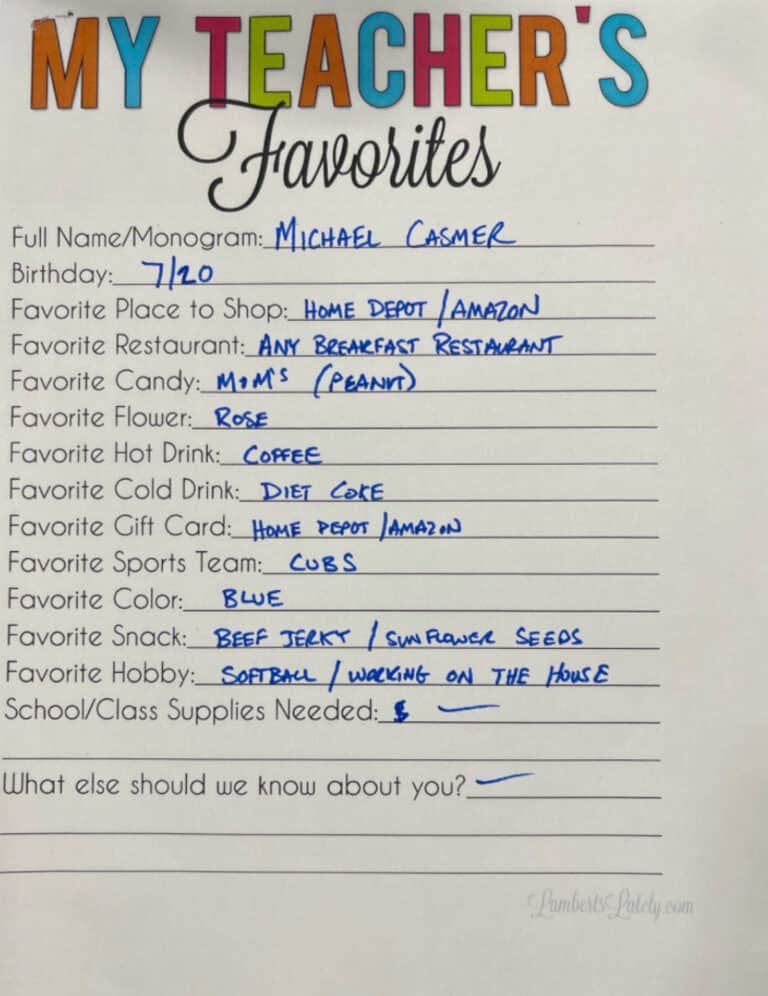 MY TEACHER'S
Favorites
Full Name/Monogram: MICHAEL CASMER
Birthday: 7/20
Favorite Place to Shop: HOME DEPOT / AMAZON
Favorite Restaurant: ANY BREAKFAST RESTAURANT
Favorite Candy: M+M'S (PEANUT)
Favorite Flower: ROSE
Favorite Hot Drink: COFFEE
Favorite Cold Drink: DIET COKE
Favorite Gift Card: HOME DEPOT / AMAZON
Favorite Sports Team: CUBS
Favorite Color: BLUE
Favorite Snack: BEEF JERKY / SUNFLOWER SEEDS
Favorite Hobby: SOFTBALL / WORKING ON THE HOUSE
School/Class Supplies Needed: —
What else should we know about you? —
LambertsLately.com